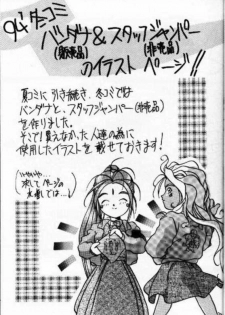 '94 冬コミ
バンダナ&スタッフジャンパー
(販売品)(非売品)
のイラストページ!!
夏コミに引き続き、冬コミでは
バンダナと、スタッフジャンパー(非売品)
を作りました。
そこで買えなかった人達の為に
使用したイラストを載せておきます!
いやいや…
決してページの
水増しでは…